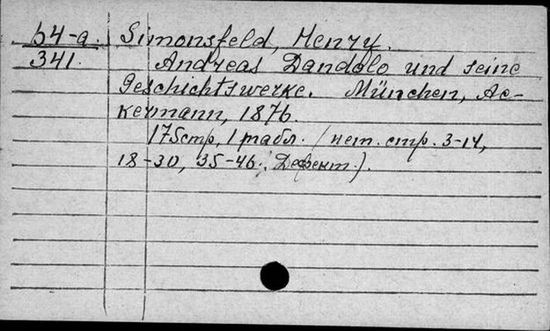 64-a. Simonsfeld, Henry.
341. Andreas Dandolo und seine
Geschichtswerke. München, Ac-
kermann, 1876.
175стр, 1 табл. (нет. стр. 3-14,
18-30, 35-46. Дефект.).